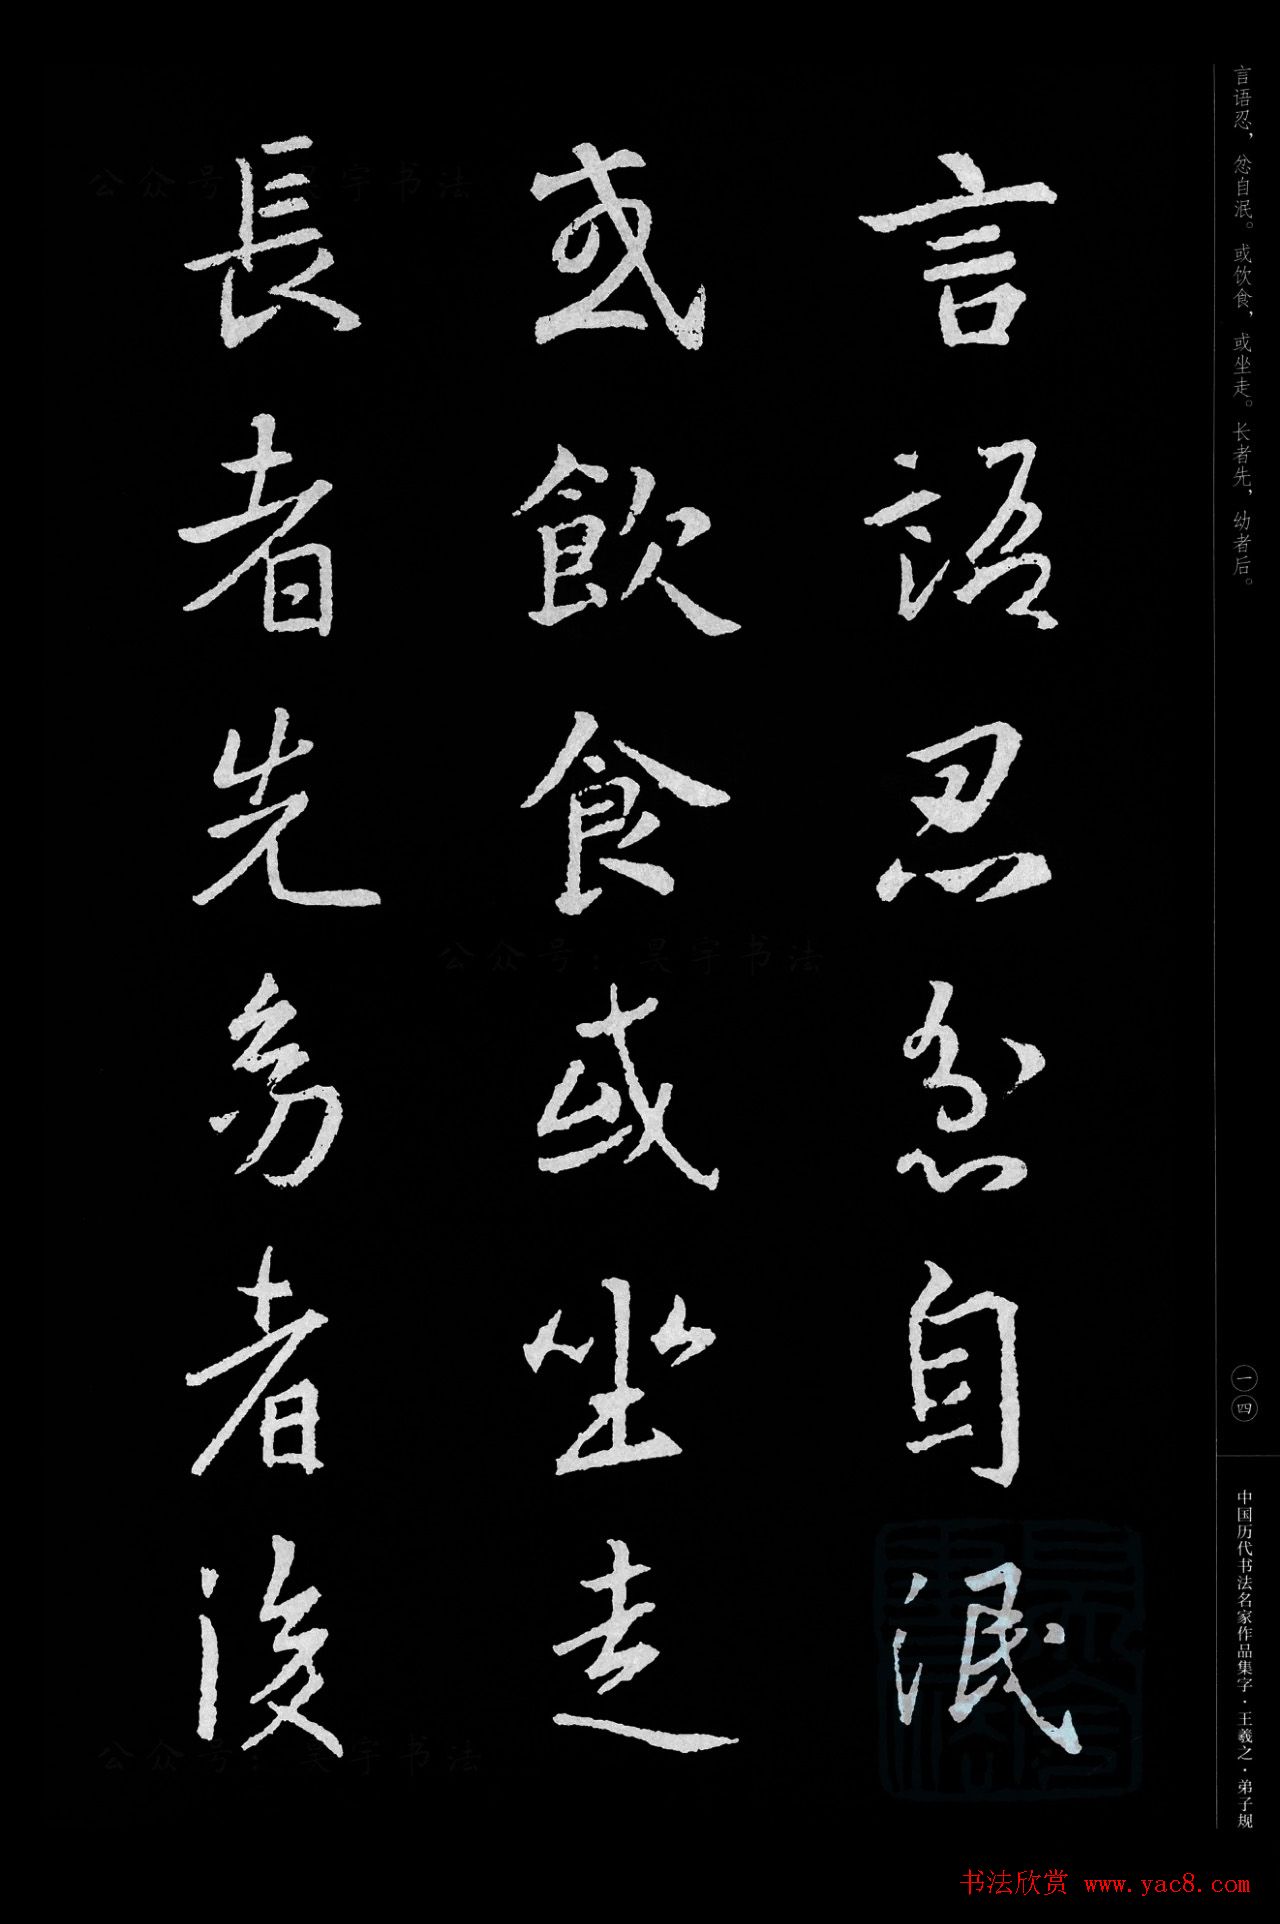 言語忍忿自泯
或飲食或坐走
長者先幼者後
言语忍，忿自泯。或饮食，或坐走。长者先，幼者后。
一四
中国历代书法名家作品集字·王羲之·弟子规
公众号：昊宇书法
公众号：昊宇书法
公众号：昊宇书法
书法欣赏 www.yac8.com